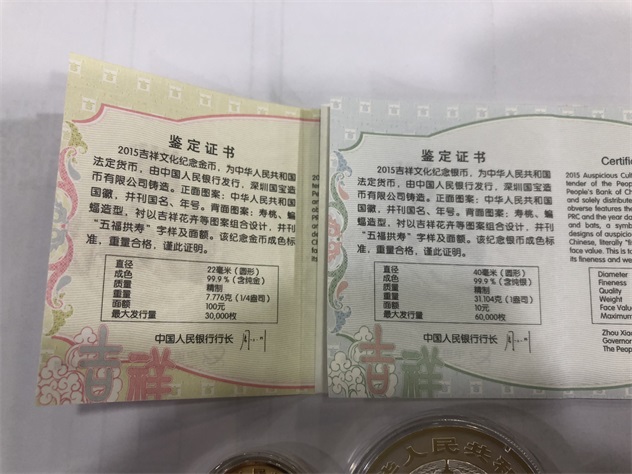 鉴定证书
2015吉祥文化纪念金币，为中华人民共和国
法定货币，由中国人民银行发行，深圳国宝造
币有限公司铸造。正面图案：中华人民共和国
国徽，并刊国名、年号。背面图案：寿桃、蝙
蝠造型，衬以吉祥花卉等图案组合设计，并刊
“五福拱寿”字样及面额。该纪念金币成色标
准，重量合格，谨此证明。
直径 22毫米（圆形）
成色 99.9％（含纯金）
质量 精制
重量 7.776克（1/4盎司）
面额 100元
最大发行量 30,000枚
中国人民银行行长
吉祥
鉴定证书
2015吉祥文化纪念银币，为中华人民共和国
法定货币，由中国人民银行发行，深圳国宝造
币有限公司铸造。正面图案：中华人民共和国
国徽，并刊国名、年号。背面图案：寿桃、蝙
蝠造型，衬以吉祥花卉等图案组合设计，并刊
“五福拱寿”字样及面额。该纪念银币成色标
准，重量合格，谨此证明。
直径 40毫米（圆形）
成色 99.9％（含纯银）
质量 精制
重量 31.104克（1盎司）
面额 10元
最大发行量 60,000枚
中国人民银行行长
吉祥
Certific
2015 Auspicious Cult
tender of the Peop
People's Bank of Ch
and solely distribute
obverse features th
PRC and the year da
and bats, a symb
designs of auspicio
Chinese, literally "fi
face value. This is to
its fineness and we
Diameter
Fineness
Quality
Weight
Face Value
Maximum
Zhou Xiao
Governor
The Peop
华人民共和